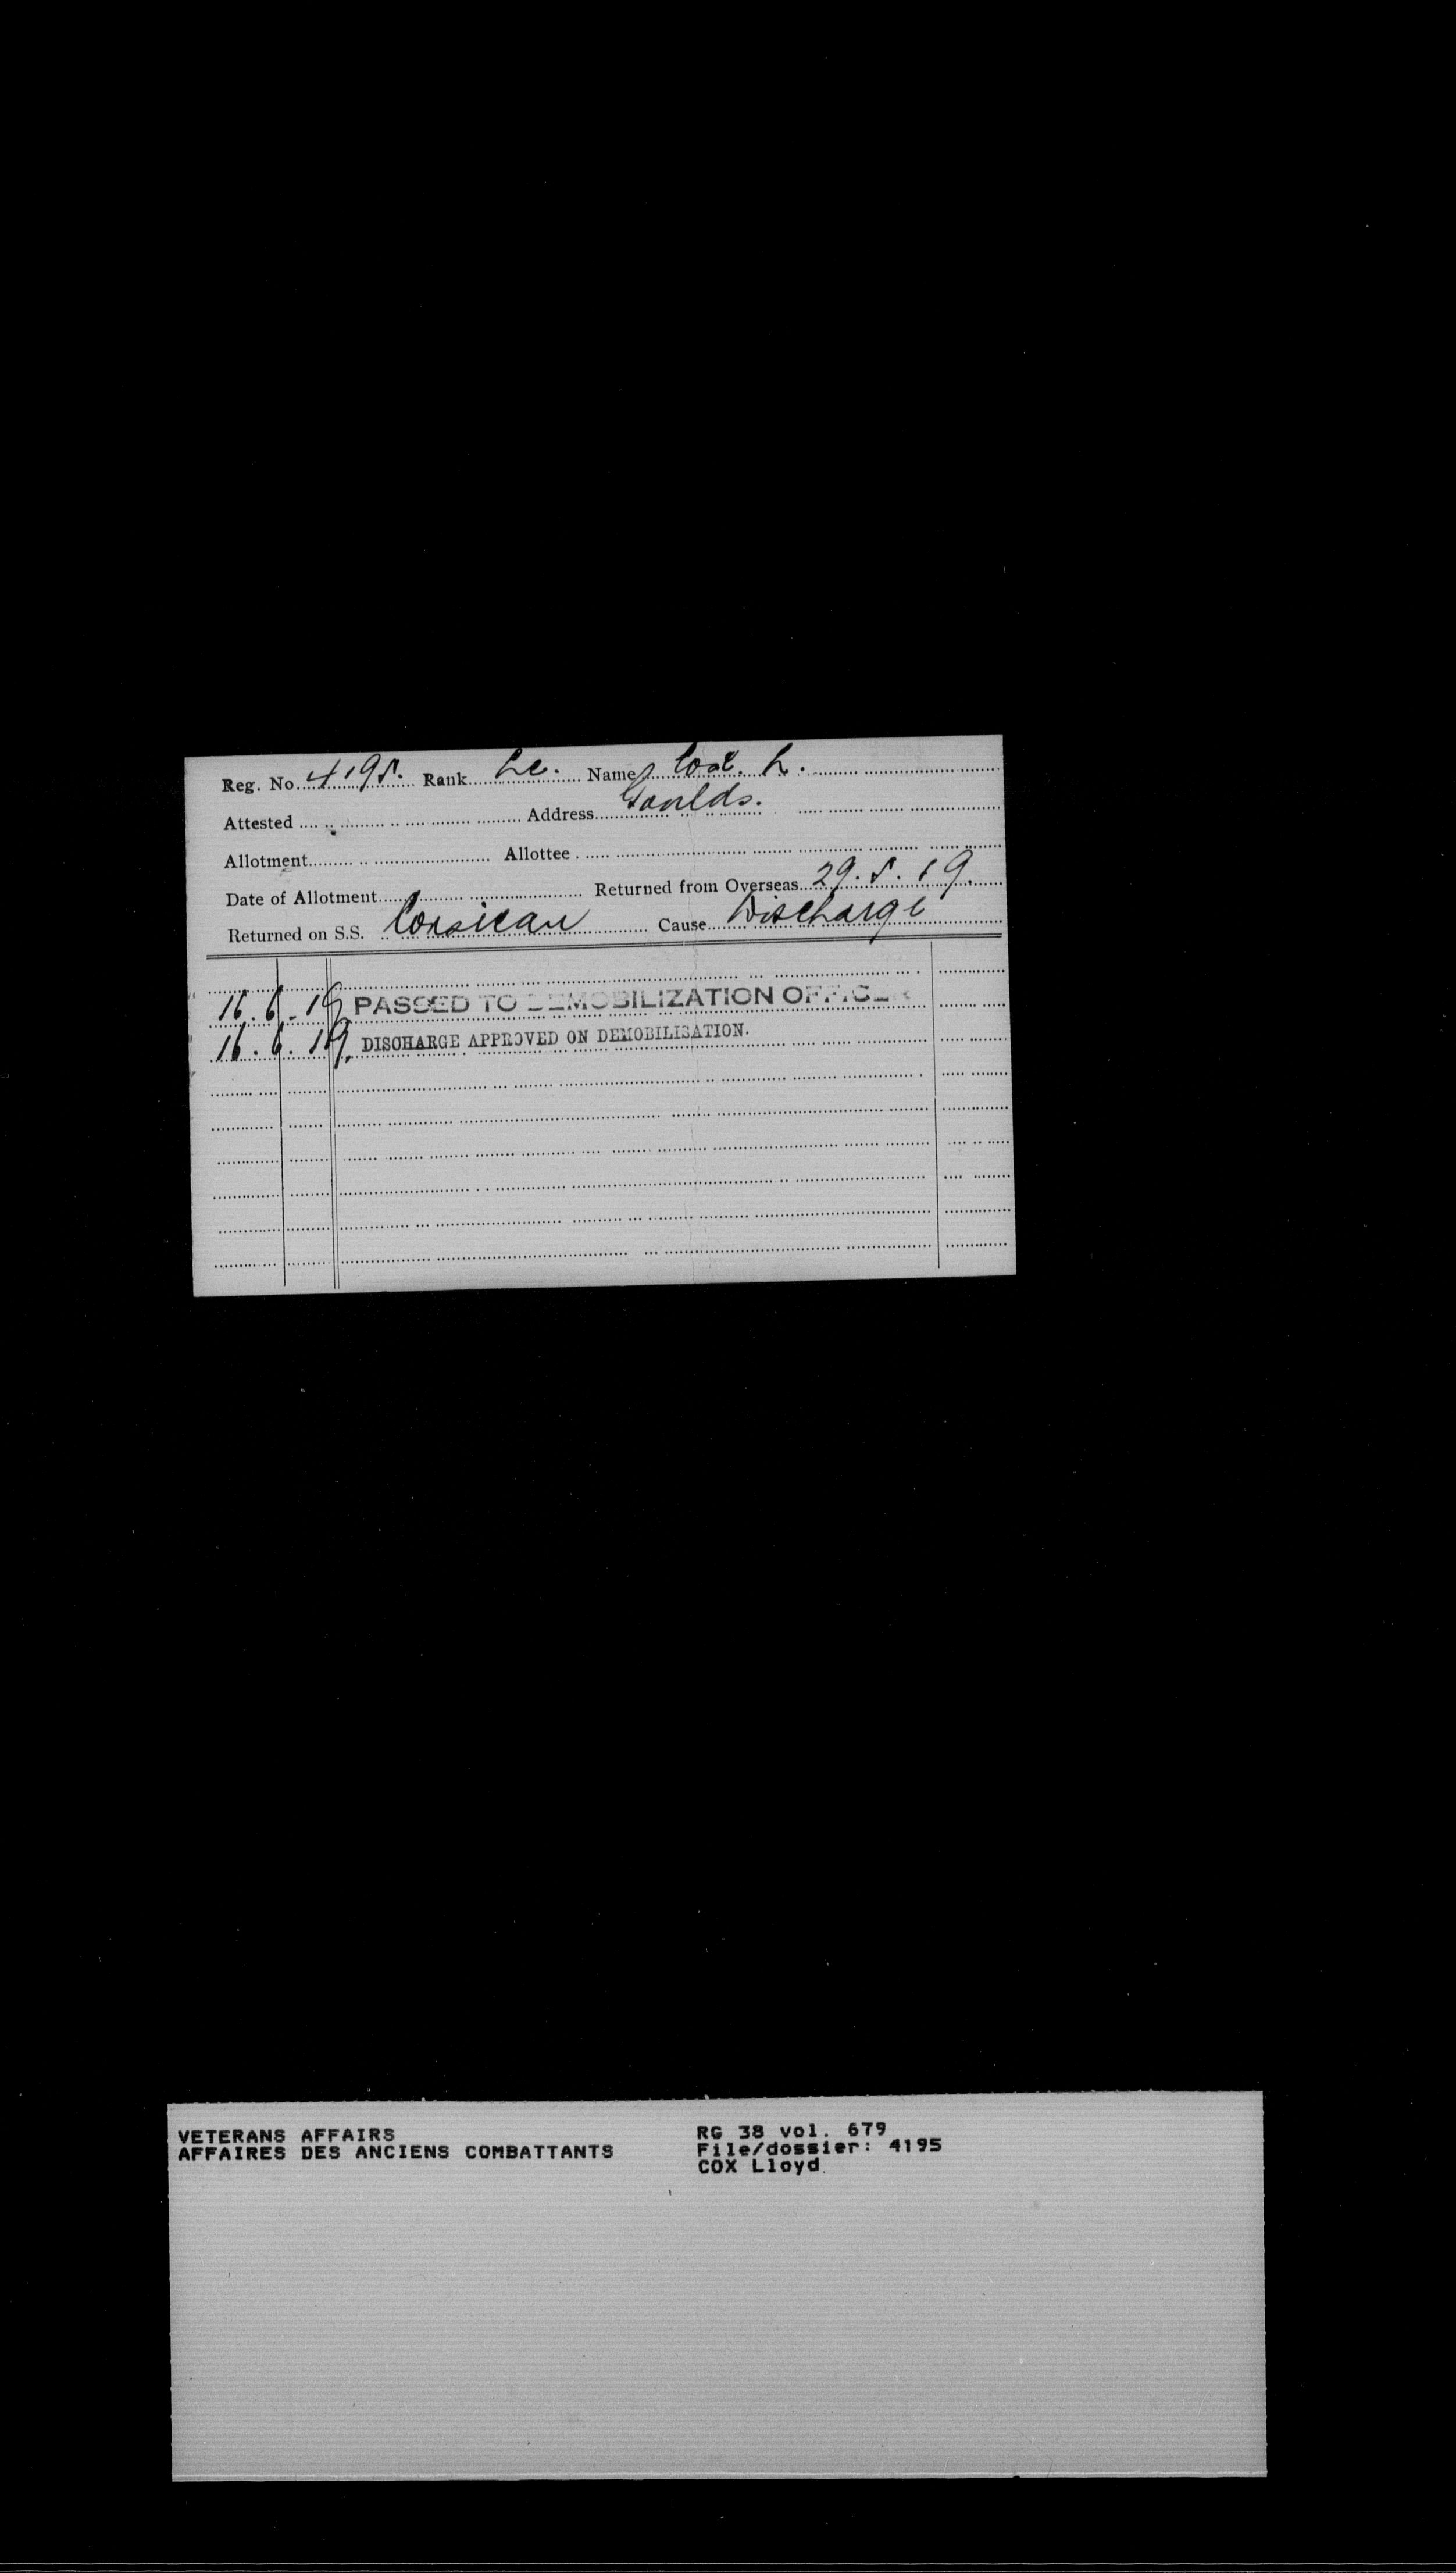 Reg. No. 4195. Rank Lc. Name Cox. L.
Attested Address Goulds.
Allotment Allottee
Date of Allotment Returned from Overseas 29.5.19.
Returned on S.S. Corsican Cause Discharge
16.6.19 PASSED TO DEMOBILIZATION OFFICER
16.6.19. DISCHARGE APPROVED ON DEMOBILISATION.
VETERANS AFFAIRS RG 38 vol. 679
AFFAIRES DES ANCIENS COMBATTANTS File/dossier: 4195
COX Lloyd